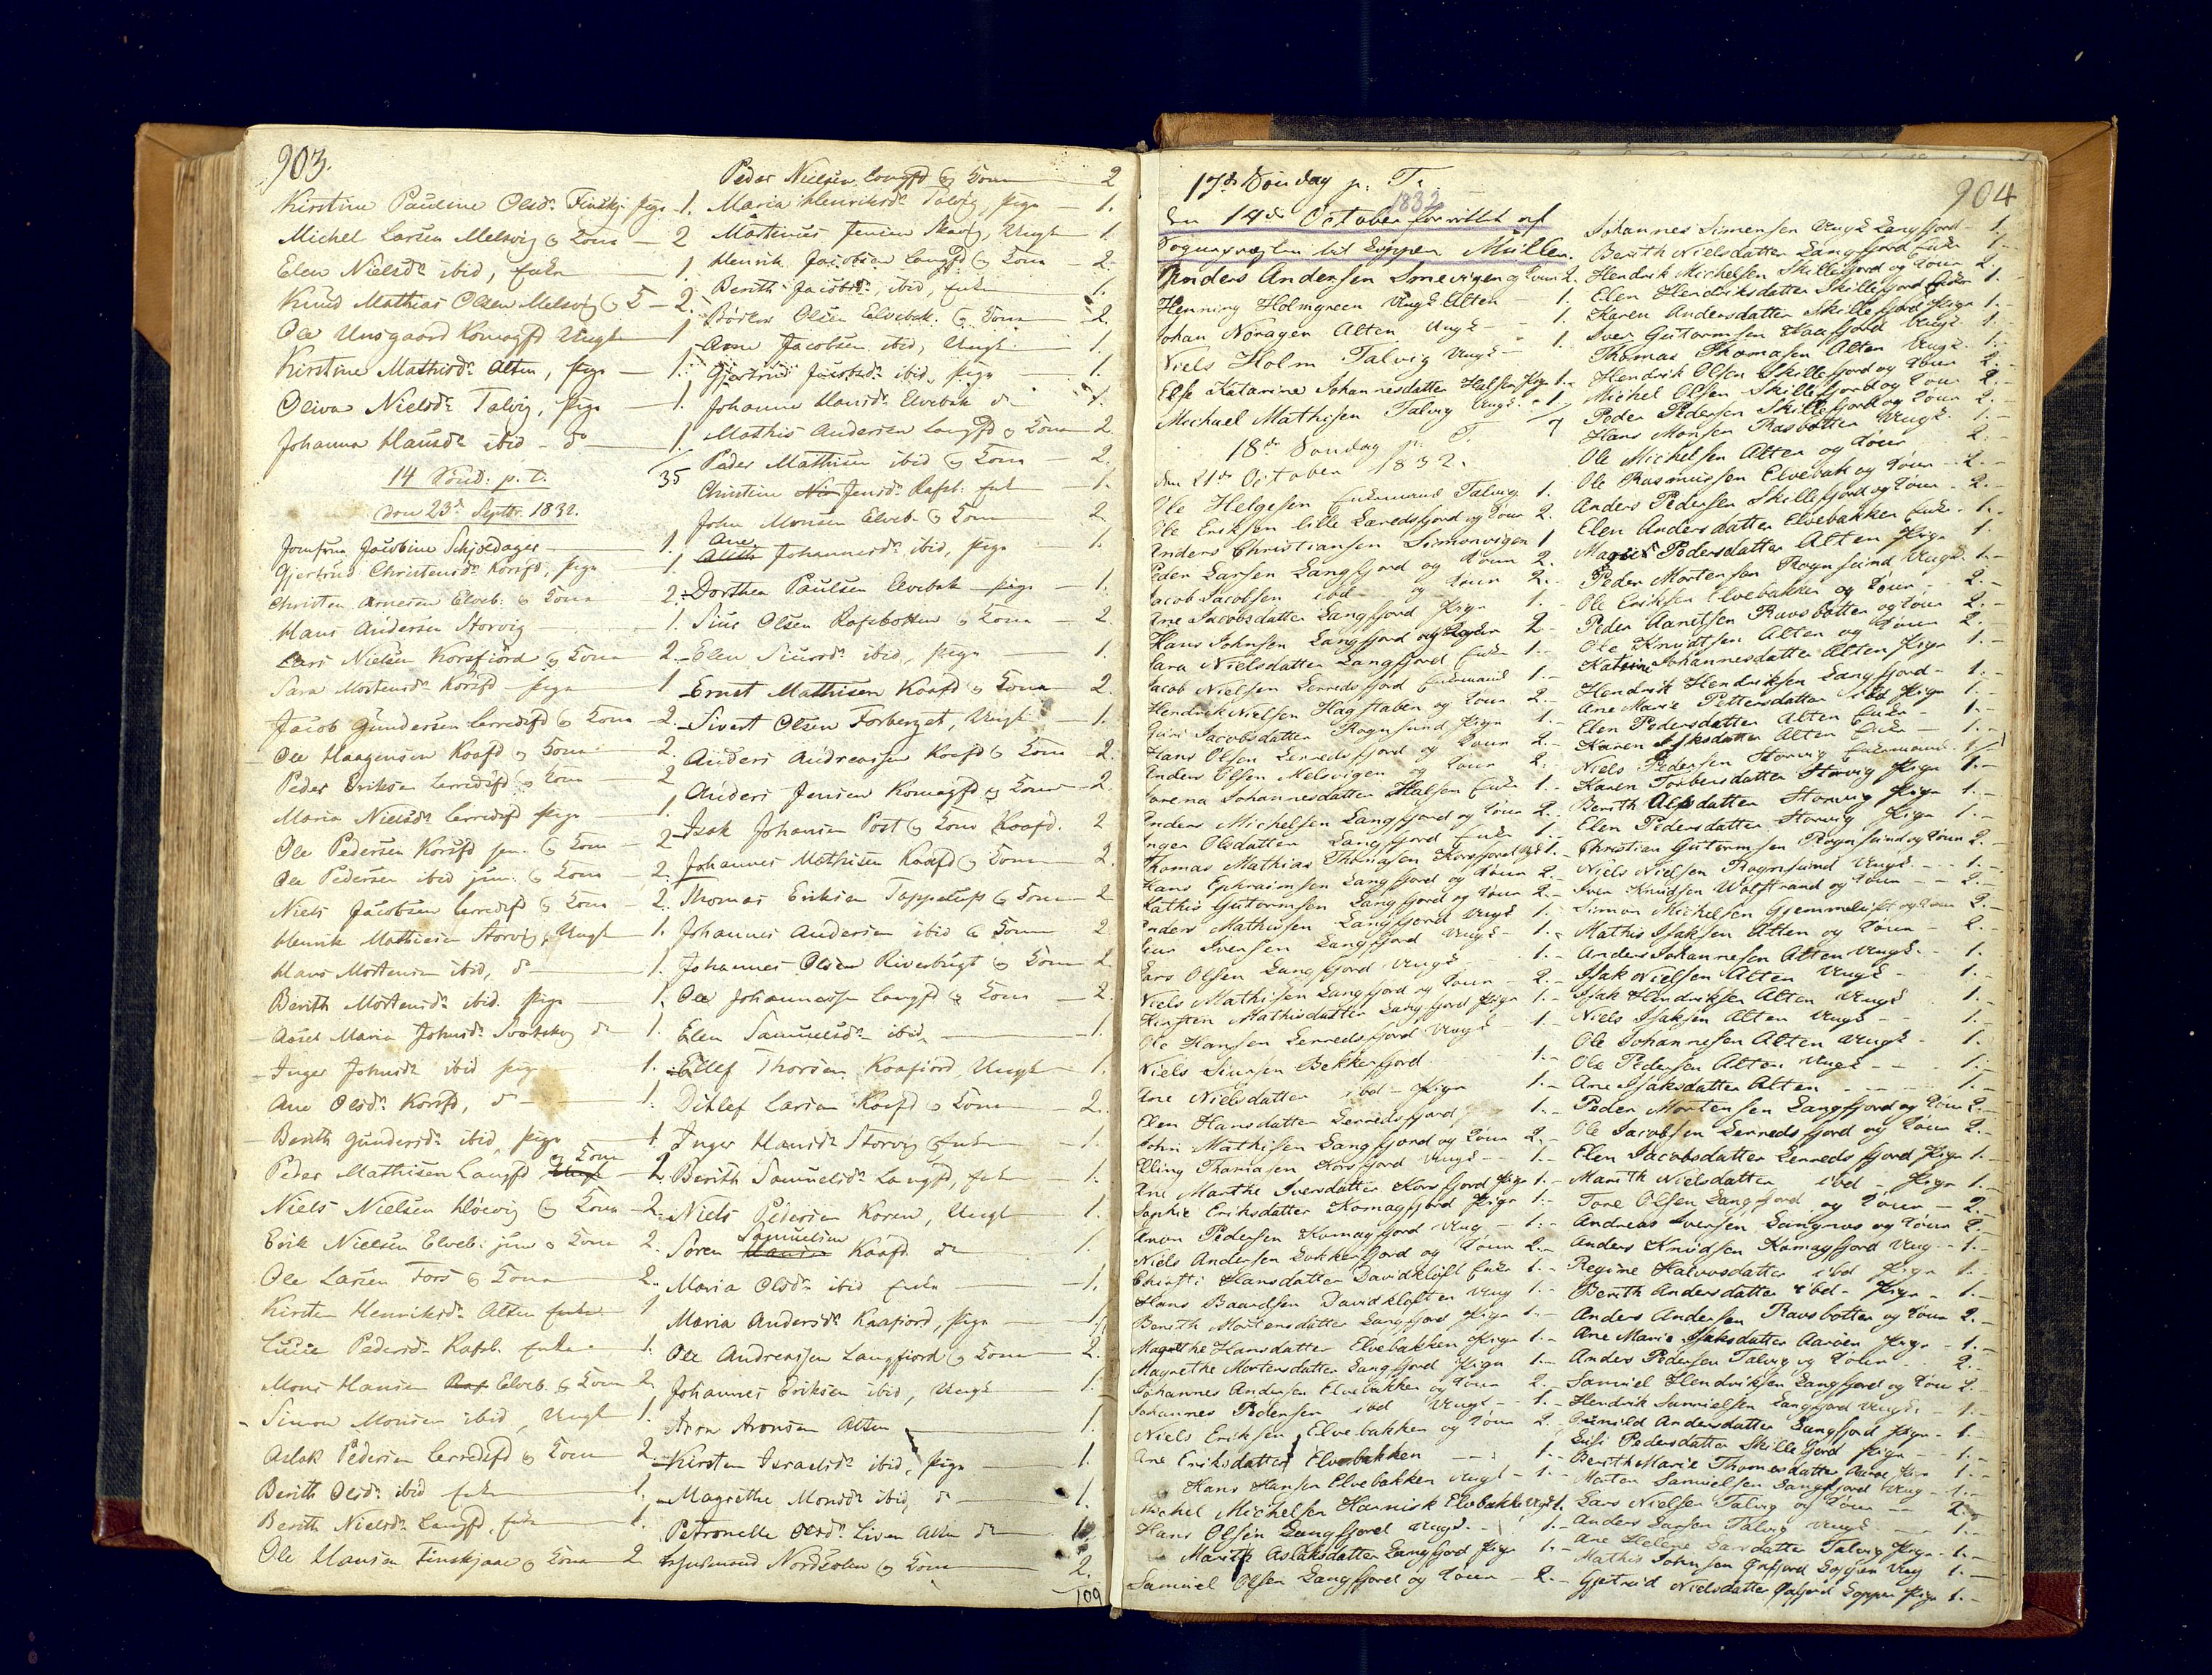 903.
Kirstine Pauline Olsdr Finskj. pige 1.
Michel Larsen Melsvig og Kona 2
Elen Nielsdr ibid, enke 1.
Knud Mathias Olsen Melsvig og K 2.
Ole Unsgaard Komagfd Ungk 1
Kirstine Mathisdr Alten, pige 1.
Oliva Nielsdr Talvig, pige 1.
Johanna Hansdr ibid do 1.
35
14 Sønd: p. T.
den 23de Septbr. 1832.
Jomfrue Jacobine Schjoldager 1.
Gjertrud Christensdr Korsfd, pige 1
Christen Arnesen Elveb. og Kona 2.
Hans Andersen Storvig 1.
Lars Nielsen Korsfiord og Kona 2.
Sara Mortensdr Korsfd pige 1
Jacob Gundersen Lerredsfd og Kona 2.
Ole Haagensen Kaafd og Kona 2.
Peder Eriksen Lerredsfd og Kona 2
Maria Nielsdr Lerredsfd pige 1.
Ole Pedersen Korsfd sen. og Kona 2
Ole Pedersen ibid jun. og Kona 2.
Niels Jacobsen Lerredsfd og Kona 2.
Henrik Mathisen Storvig, Ungk 1.
Hans Mortensen ibid, do 1.
Berith Mortensdr ibid. pige 1.
Aasel Maria Johnsdr do 1.
Inger Johnsdr ibid pige 1.
Ane Olsdr Korsfd, do 1.
Berith Gundersdr ibid, pige 1.
og Kona
Peder Mathisen Langfd Ungk 2
Niels Nielsen og Kona 2.
Erik Nielsen Elveb: jun og Kona 2.
Ole Larsen Fors og Kona 2.
Kirsten Henriksdr Alten enke 1
Lucie Pedersdr Rafsb. enke 1.
Mons Hansen Raf Elveb. og Kona 2
Simon Monsen ibid, Ungk 1.
Aslak Pedersen Lerredsfd og Kona 2.
Berith Olsdr ibid enke 1.
Berith Nielsdr Langfd, enke 1.
Ole Hansen Finskjaae og Kona 2
Peder Nielsen Langfd og Kona 2
Maria Henriksdr Talvig, pige 1.
Martinus Jensen, Ungk 1.
Henrik Jacobsen Langfd og Kona 2.
Berith Jacobsdr, ibid, enke 1.
Olsen Elvebak. og Kona 2.
Arne Jacobsen ibid, Ungk 1.
Gjertrud Jacobsdr ibid, pige 1.
Johanne Hansdr Elvebak do 1.
Mathis Andersen Langfd og Kona 2
Peder Mathisen ibid og Kona 2.
Christine Jensdr Rafsb. enke 1.
John Monsen Elveb. og Kona 2
Ane
Johannesdr ibid, pige 1.
Dorthea Paulsen Elvebak pige 1.
Siur Olsen Rafsbotten og Kona 2
Elen Siursdr ibid, pige 1.
Ernst Mathisen Kaafd og Kona 2.
Sivert Olsen Forberget, Ungk 1.
Anders Andreassen Kaafd og Kona 2.
Anders Jensen Komagfd og Kona 2.
Isak Johansen Post og Kona Kaafd. 2
Johannes Mathisen Kaafd og Kona 2.
Thomas Eriksen Tappeluft og Kona 2
Johannes Andersen ibid og Kona 2
Johannes Olsen Riverbugt og Kona 2
Ole Johannessen Langfd og Kona 2.
Elen Samuelsdr ibid, 1.
Ellef Thorsen Kaafiord, Ungk 1.
Ditlef Larsen Kaafd og Kona 2.
Inger Hansdr Storvig enke 1.
Berith Samuelsdr Langfd, enke 1.
Niels Pedersen Koren, Ungk 1.
Samuelsen
Søren Hansen Kaafd do 1.
Maria Olsdr ibid enke 1.
Maria Andersdr Kaafjord, pige 1
Ole Andreassen Langfjord og Kona 2.
Johannes Eriksen ibid, Ungk 1.
Aron Aronsen Alten 1
Kirsten Israelsdr ibid, pige 1.
Magrethe Monsdr ibid, do 1.
Petronelle Olsdr Alten do 1.
Gudmund Nordvolen og Kona 2.
109
904
17de Søndag p. T.
1832
den 14de October forrettet af
Sognepræsten til Loppen Müller.
Anders Andersen Smevigen og Kone 2.
Henning Holmgreen Ungk. Alten 1.
Johan Noragen Alten Ungk 1.
Niels Holm Talvig Ungk 1
Else Katarine Johannesdatter Halsen Pige 1.
Michael Mathisen Talvig Ungk 1
7
18de Søndag p. T.
den 21de October 1832.
Ole Helgesen Enkemand Talvig 1.
Ole Eriksen lille Læredsfjord og Kone 2.
Anders Christiansen Simonvigen 1
Peder Larsen Langfjord og Kone 2.
Jacob Jacobsen ibd og Kone 2.
Ane Jacobsdatter Langfjord Pige 1.
Hans Johnsen Langfjord og Kone 2
Sara Nielsdatter Langfjord Enke 1.
Jacob Nielsen Lerredsfjord Enkemand 1.
Hendrik Nielsen Hagstaben og Kone 2
Guri Jacobsdatter Rognsund Pige 1.
Hans Olsen Lerredsfjord og Kone 2.
Anders Olsen Melsvigen og Kone 2.
Lorena Johannesdatter Halsen Enke 1.
Anders Michelsen Langfjord og Kone 2.
Inger Olsdatter Langfjord Enke 1.
Thomas Mathias Thomasen Korsfjord Ugk 1.
Hans Ephraimsen Langfjord og Kone 2.
Mathis Gutormsen Langfjord og Kone 2.
Anders Mathisen Langfjord Ungk 1.
Siur Iversen Langfjord Ungk 1.
Lars Olsen Langfjord Ungk 1.
Niels Mathisen Langfjord og Kone 2.
Kirsten Mathisdatter Langfjord Pige 1.
Ole Hansen Lerredsfjord Ungk 1
Niels Siursen Bekkerfjord 1.
Ane Nielsdatter ibd Pige 1.
Elen Hansdatter Lerredsfjord 1.
John Mathisen Langfjord og Kone 2.
Elling Thomasen Korsfjord Ungk 1.
Ane Marthe Iversdatter Korsfjord Pige 1.
Sophie Eriksdatter Komagfjord Pige 1.
Amon Pedersen Komagfjord Ung 1.
Niels Andersen Lakkerfjord og Kone 2.
Christi Hansdatter Davidkloft Enke 1.
Hans Baardsen Davidkloften Ung 1.
Berith Mortensdatter Langfjord Pige 1.
Magrethe Hansdatter Elvebakken Pige 1.
Magrethe Mortensdatter Langfjord Pige 1.
Johannes Andersen Elvebakken og Kone 2.
Johannes Pedersen ibd Ungk 1.
Niels Eriksen Elvebakken og Kone 2.
Ane Eriksdatter Elvebakken 1.
Hans Hansen Elvebakken Ungk 1.
Michel Michelsen Hannisk Elvebakke Ungk 1.
Hans Olsen Langfjord Ungk. 1.
Marith Aslaksdatter Langfjord Pige 1.
Samuel Olsen Langfjord og Kone 2.
Johannes Simensen Ungk Langfjord 1.
Berith Nielsdatter Langfjord Enke 1.
Hendrik Michelsen Skillefjord og Kone 2.
Elen Hendriksdatter Skillefjord Enke 1.
Karen Andersdatter Skillefjord Pige 1.
Iver Gutormsen Kaafjord Ungk 1.
Thomas Thomasen Alten Ungk. 1.
Hendrik Olsen Skillefjord og Kone 2.
Michel Olsen Skillefjord og Kone 2.
Peder Pedersen Skillefjord og Kone 2.
Hans Monsen Rasbotten Ungk. 1.
Ole Michelsen Alten og Kone 2.
Ole Rasmussen Elvebak og Kone 2.
Anders Pedersen Skillefjord og Kone 2.
Elen Andersdatter Elvebakken Enke 1.
Pedersdatter Alten Pige 1.
Peder Mortensen Rognsund Ungk. 1.
Ole Eriksen Elvebakken og Kone 2.
Peder Aanetsen Ravsbotten og Kone 2.
Ole Knudtsen Alten og Kone 2.
Katrine Johannesdatter Alten Pige 1.
Hendrik Hendriksen Langfjord 1.
Ane Marie Pettersdatter ibd Pige 1.
Elen Pedersdatter Alten Enke 1.
Karen Isaksdatter Alten Enke 1.
Niels Pedersen Storvig Enkemand. 1
Karen Torbersdatter Storvig Pige 1.
Berith Alsdatter Storvig Pige 1.
Elen Pedersdatter Storvig Pige 1.
Christian Gutormsen Rognsund og Kone 2.
Niels Nielsen Rognsund Ungk 1.
Iver Knudsen Wolstrand og Kone 2.
Simon Michelsen Gjemmeluft og Kone 2.
Mathis Isaksen Alten og Kone 2.
Anders Johannesen Alten Ungk. 1.
Isak Nielsen Alten Ungk 1.
Isak Hendriksen Alten Ungk 1.
Niels Isaksen Alten Ungk 1.
Ole Johannesen Alten Ungk 1.
Ole Pedersen Alten Ungk 1.
Ane Isaksdatter Alten 1.
Peder Mortensen Langfjord og Kone 2.
Ole Jacobsen Lerredsfjord og Kone 2.
Elen Jacobsdatter Lerredsfjord Pige 1.
Marith Nielsdatter ibd Pige 1.
Tore Olsen Langfjord og Kone 2.
Andreas Iversen Langnæs og Kone 2.
Anders Knudsen Komagfjord Ung 1.
Regine Halvorsdatter ibd Pige 1.
Berith Andersdatter ibd Pige 1.
Anders Andersen Ravsbotten og Kone 2.
Ane Marie Isaksdatter Aarøen Pige 1.
Anders Pedersen Talvig og Kone 2.
Samuel Hendriksen Langfjord og Kone 2.
Hendrik Samuelsen Langfjord Ungk. 1.
Gunild Andersdatter Langfjord Pige 1.
Pedersdatter Skillefjord Pige 1.
Berith Marie Thomesdatter Pige 1.
Morten Samuelsen Langfjord Ung 1.
Lars Nielsen Talvig og Kone 2.
Anders Larsen Talvig Ungk 1.
Ane Helene Larsdatter Talvig Pige 1.
Mathis Johnsen Øxfjord Loppen Ung 1.
Gjetrud Nielsdatter Øxfjord Loppen Pige 1.